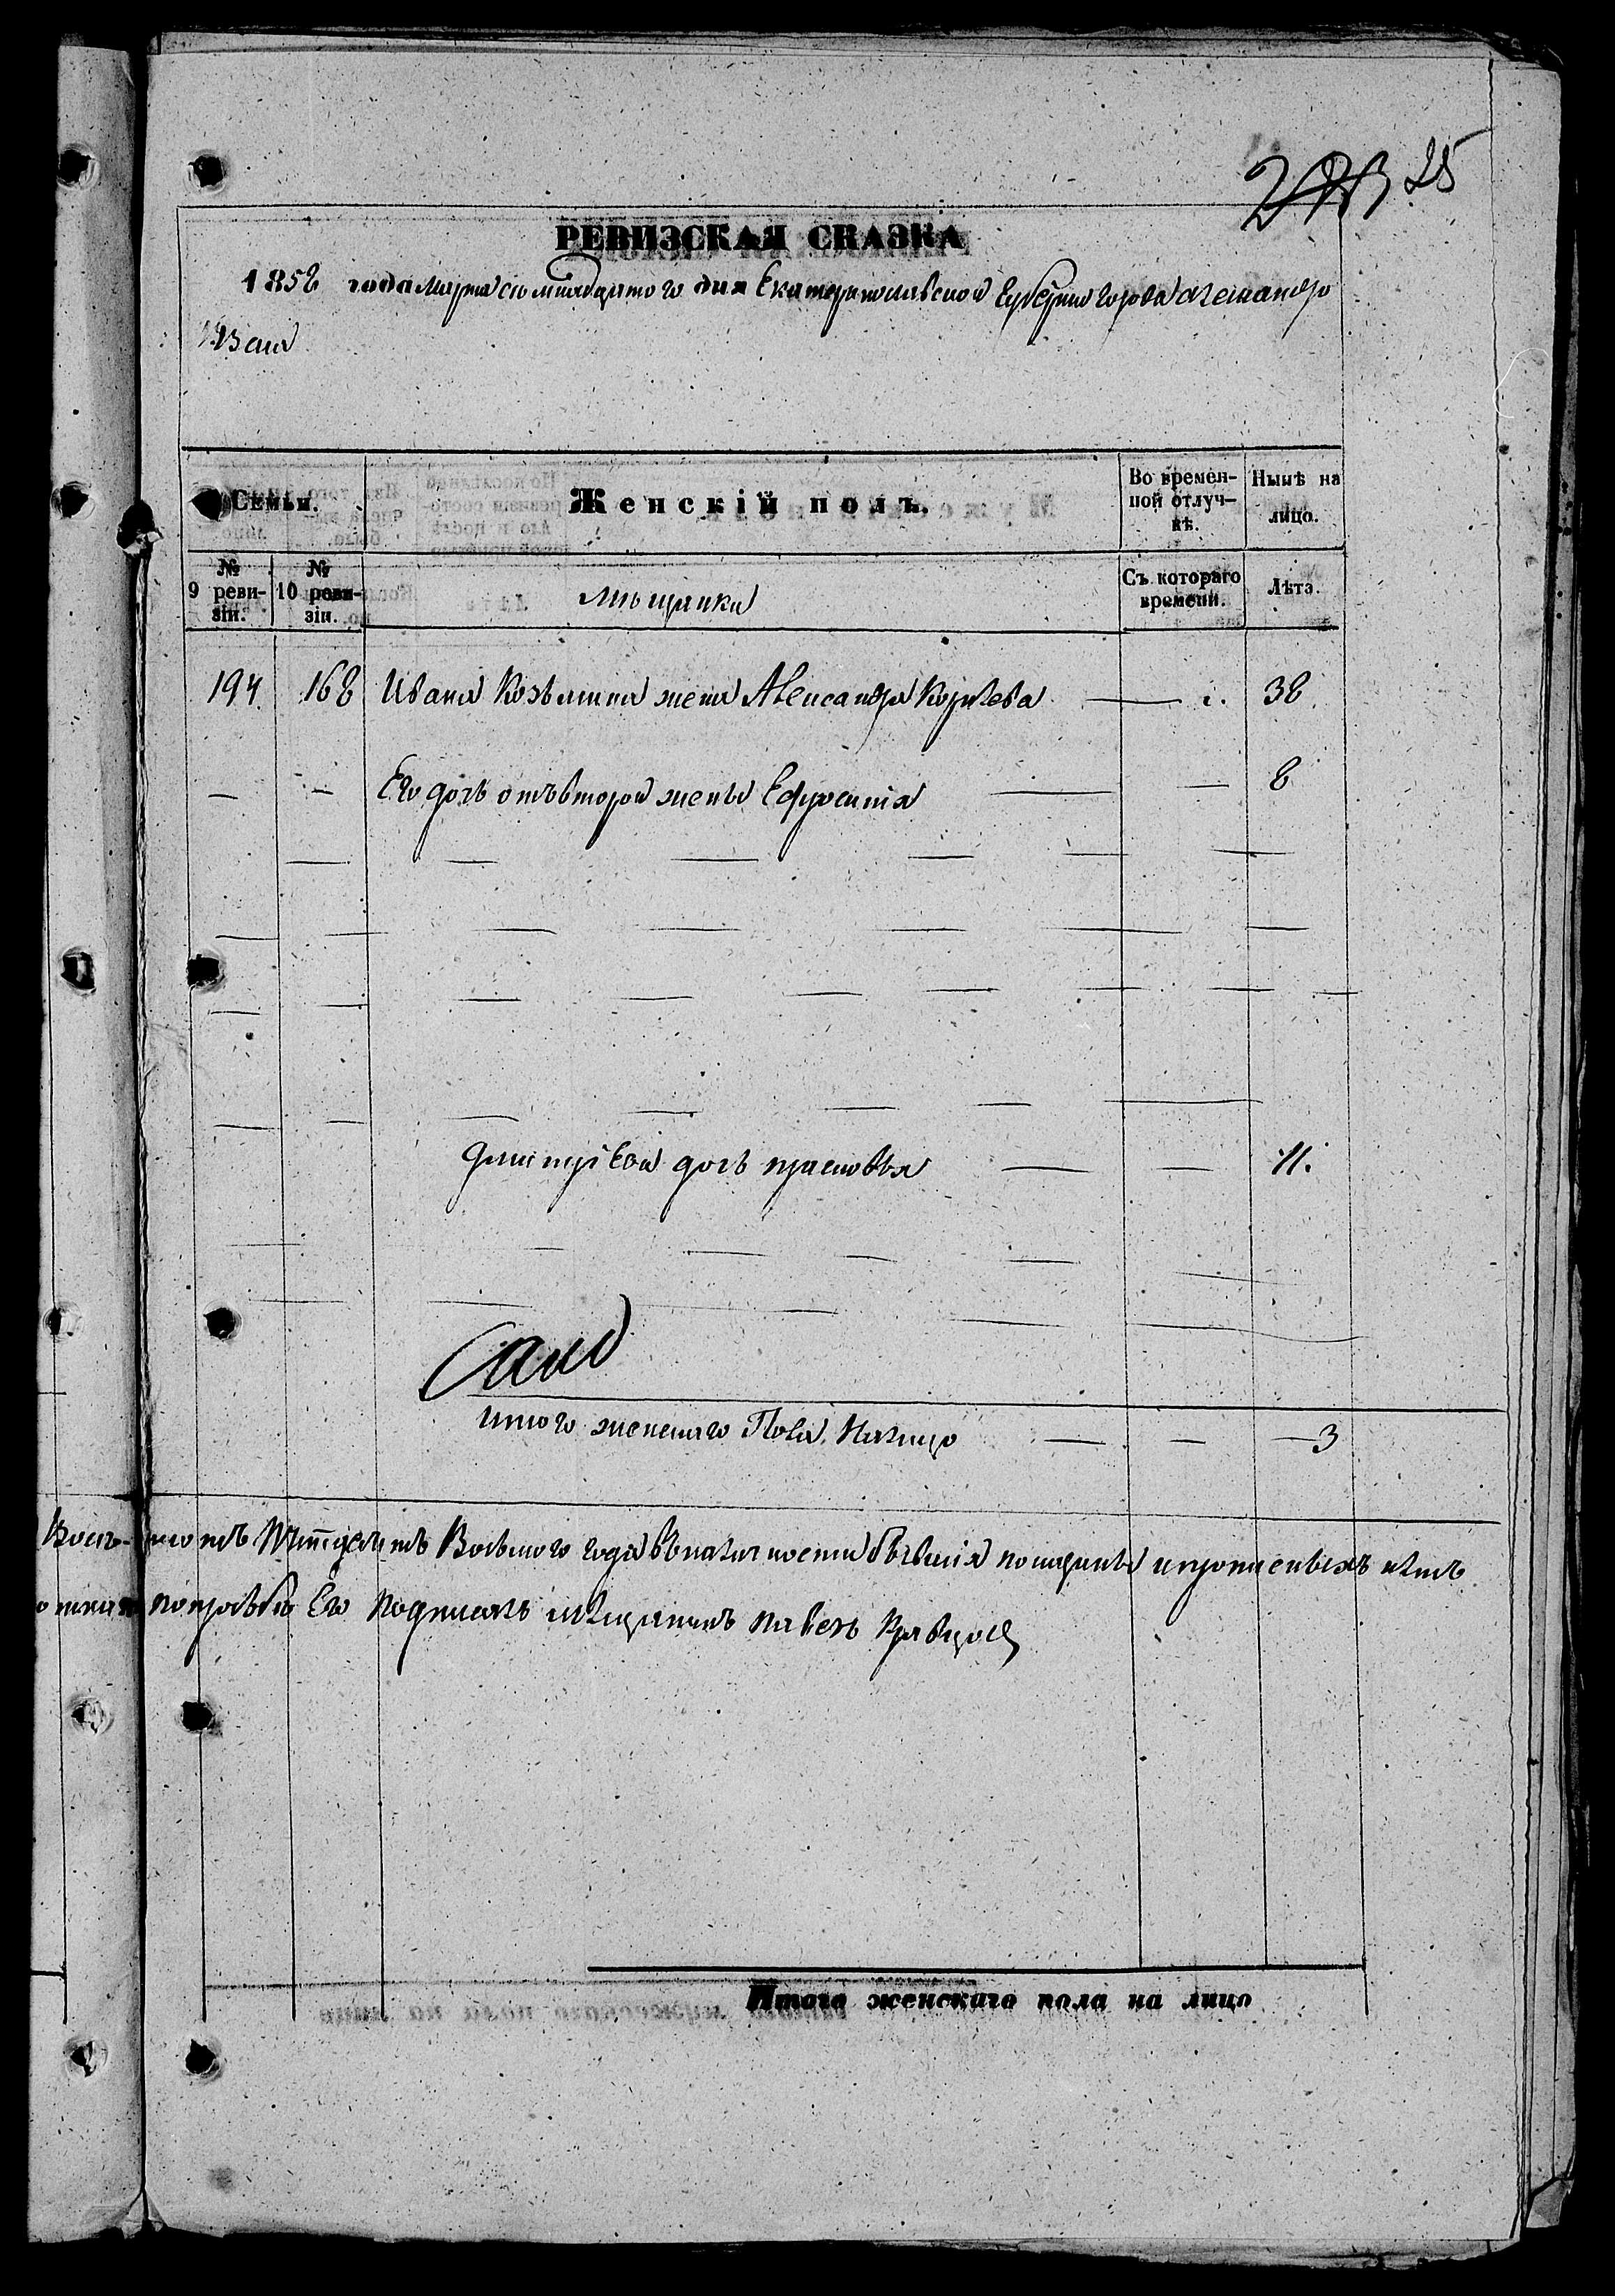 25
РЕВИЗСКАЯ СКАЗКА
1858 года Марта семнадцатого дня Екатеринославской Губернии Города Александро
Семьи.
Женскій полъ.
Во времен-
ной отлуч-
кѣ.
Нынѣ на
лицо.
№
9 реви-
зіи.
№
10 реви-
зіи.
мещанки
Съ котораго
времени.
Лѣта.
194 168 Ивана Козьмина жена Александра Корнеева — 38
— — Его дочь отъ второй жены Ефросинія — — 8
дмитріева дочь прасковья — — 11.
итого женскаго Пола Налицо — — 3
Восьмого года въ наличности
по прозьбе Его подписалъ мещанинъ павелъ Кравцов
Итого женскаго пола на лицо